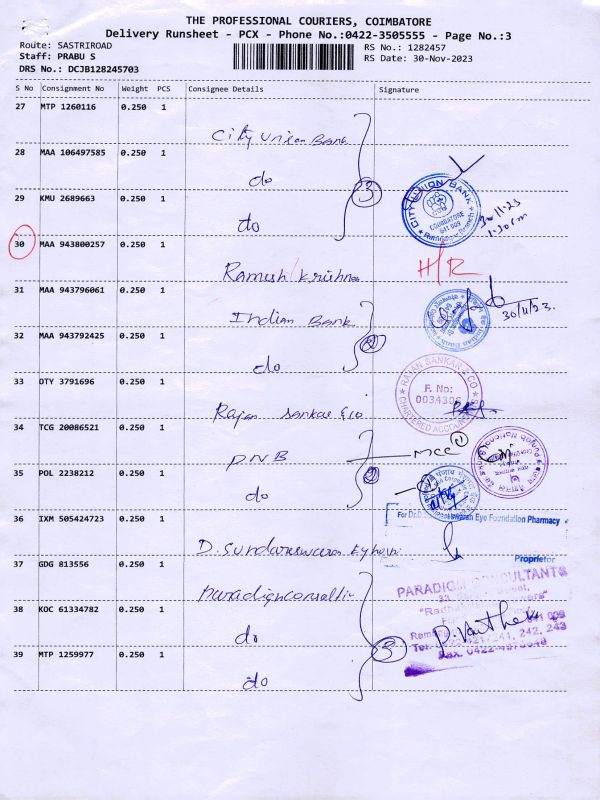 THE PROFESSIONAL COURIERS, COIMBATORE
Delivery Runsheet - PCX - Phone No.:0422-3505555 - Page No.:3
Route: SASTRIROAD
RS No.: 1282457
Staff: PRABU S
RS Date: 30-Nov-2023
DRS No.: DCJB128245703
S No Consignment No Weight PCS Consignee Details Signature
27 MTP 1260116 0.250 1 City Union Bank
28 MAA 106497585 0.250 1 do
3
CITY UNION BANK
COIMBATORE
641 009
30.11.23
1.30pm
29 KMU 2689663 0.250 1 do
30 MAA 943800257 0.250 1 Ramesh Krishna
H/R
31 MAA 943796061 0.250 1 Indian Bank
30/11/23.
32 MAA 943792425 0.250 1 do
2
33 DTY 3791696 0.250 1 Rajan Sankar & Co
RAJAN SANKAR & CO
F. No:
003430S
CHARTERED ACCOUNTANTS
34 TCG 20086521 0.250 1 PNB
MCC 1
35 POL 2238212 0.250 1 do
2
36 IXM 505424723 0.250 1 D. Sundareswaran Eye
Eye Foundation Pharmacy
Proprietor
37 GDG 813556 0.250 1 Paradigm
PARADIGM CONSULTANTS
38 KOC 61334782 0.250 1 do
3
241, 242, 243
39 MTP 1259977 0.250 1 do